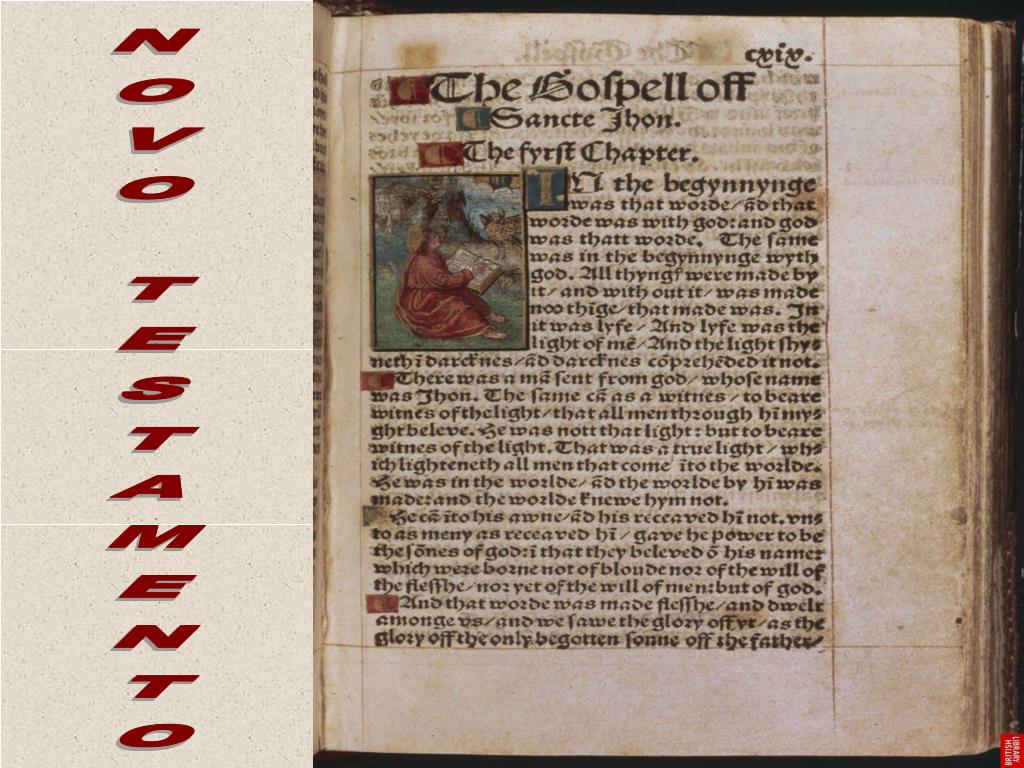 NOVO TESTAMENTO
cxix.
The Gospell off
Sancte Jhon.
The fyrst Chapter.
IN the begynnynge
was that worde/ ãd that
worde was with god: and god
was thatt worde. The same
was in the begynnynge wyth
god. All thyngs were made by
it/ and with out it/ was made
noo thĩge/ that made was. In
it was lyfe/ And lyfe was the
light of mẽ/ And the light shy⸗
neth ĩ darcknes/ ãd darcknes cõprehẽded it not.
There was a mã sent from god/ whose name
was Jhon. The same cã as a witnes/ to beare
witnes of the light/ that all men through hĩ my⸗
ght beleve. He was nott that light: but to beare
witnes of the light. That was a true light/ wh⸗
ich lighteneth all men that come ĩto the worlde.
He was in the worlde/ ãd the worlde by hĩ was
made: and the worlde knewe hym not.
He cã ĩto his awne/ ãd his receaved hĩ not. vn⸗
to as meny as receaved hĩ/ gave he power to be
the sõnes of god: ĩ that they beleved õ his name:
which were borne not of bloude nor of the will of
the flesshe/ nor yet of the will of men: but of god.
And that worde was made flesshe/ and dwelt
amonge vs/ and we sawe the glory off yt/ as the
glory off the only begotten sonne off the father/
BRITISH
LIBRARY